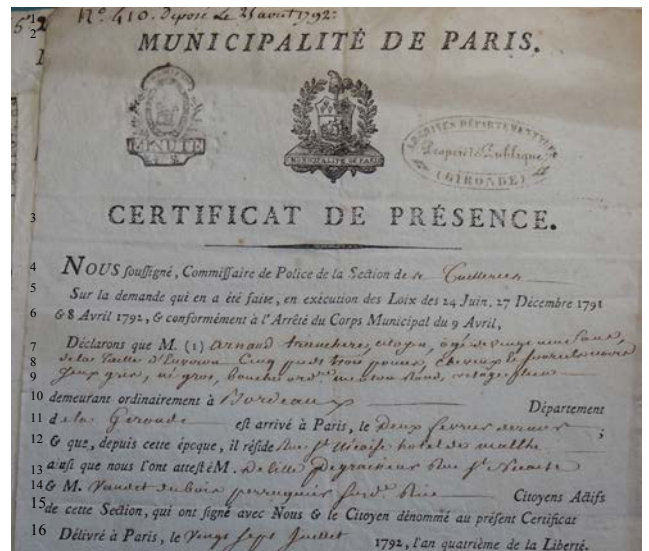 N.º 410. Deposé Le 25 aout 1792:
MUNICIPALITÉ DE PARIS.
MINUTE
MUNICIPALITÉ DE PARIS
ARCHIVES DÉPARTEMENTALES
Propriété Publique
(GIRONDE)
CERTIFICAT DE PRÉSENCE.
NOUS ſouſſigné, Commiſſaire de Police de la Section des Tuilleries
Sur la demande qui en a été faite, en exécution des Loix des 24 Juin, 27 Décembre 1791
& 8 Avril 1792, & conformément à l'Arrêté du Corps Municipal du 9 Avril,
Déclarons que M. (1) Arnaud citoyen, agé de vingt neuf ans,
de la Taille d'Environ Cinq pieds trois pouces, cheveux & sourcils noirs
yeux gris, né gros, bouche ord.re menton rond, visage plein
demeurant ordinairement à Bordeaux Département
de la Gironde eſt arrivé à Paris, le Deux fevrier dernier ;
& que, depuis cette époque, il réſide Rue St Nicaise hotel de malthe
ainſi que nous l'ont atteſté M. Delille Rue St Nicaise
& M. Vaudet dubois perruquier Rue Citoyens Actifs
de cette Section, qui ont ſigné avec Nous & le Citoyen dénommé au préſent Certificat
Délivré à Paris, le Vingt Sept Juillet 1792, l'an quatrième de la Liberté.